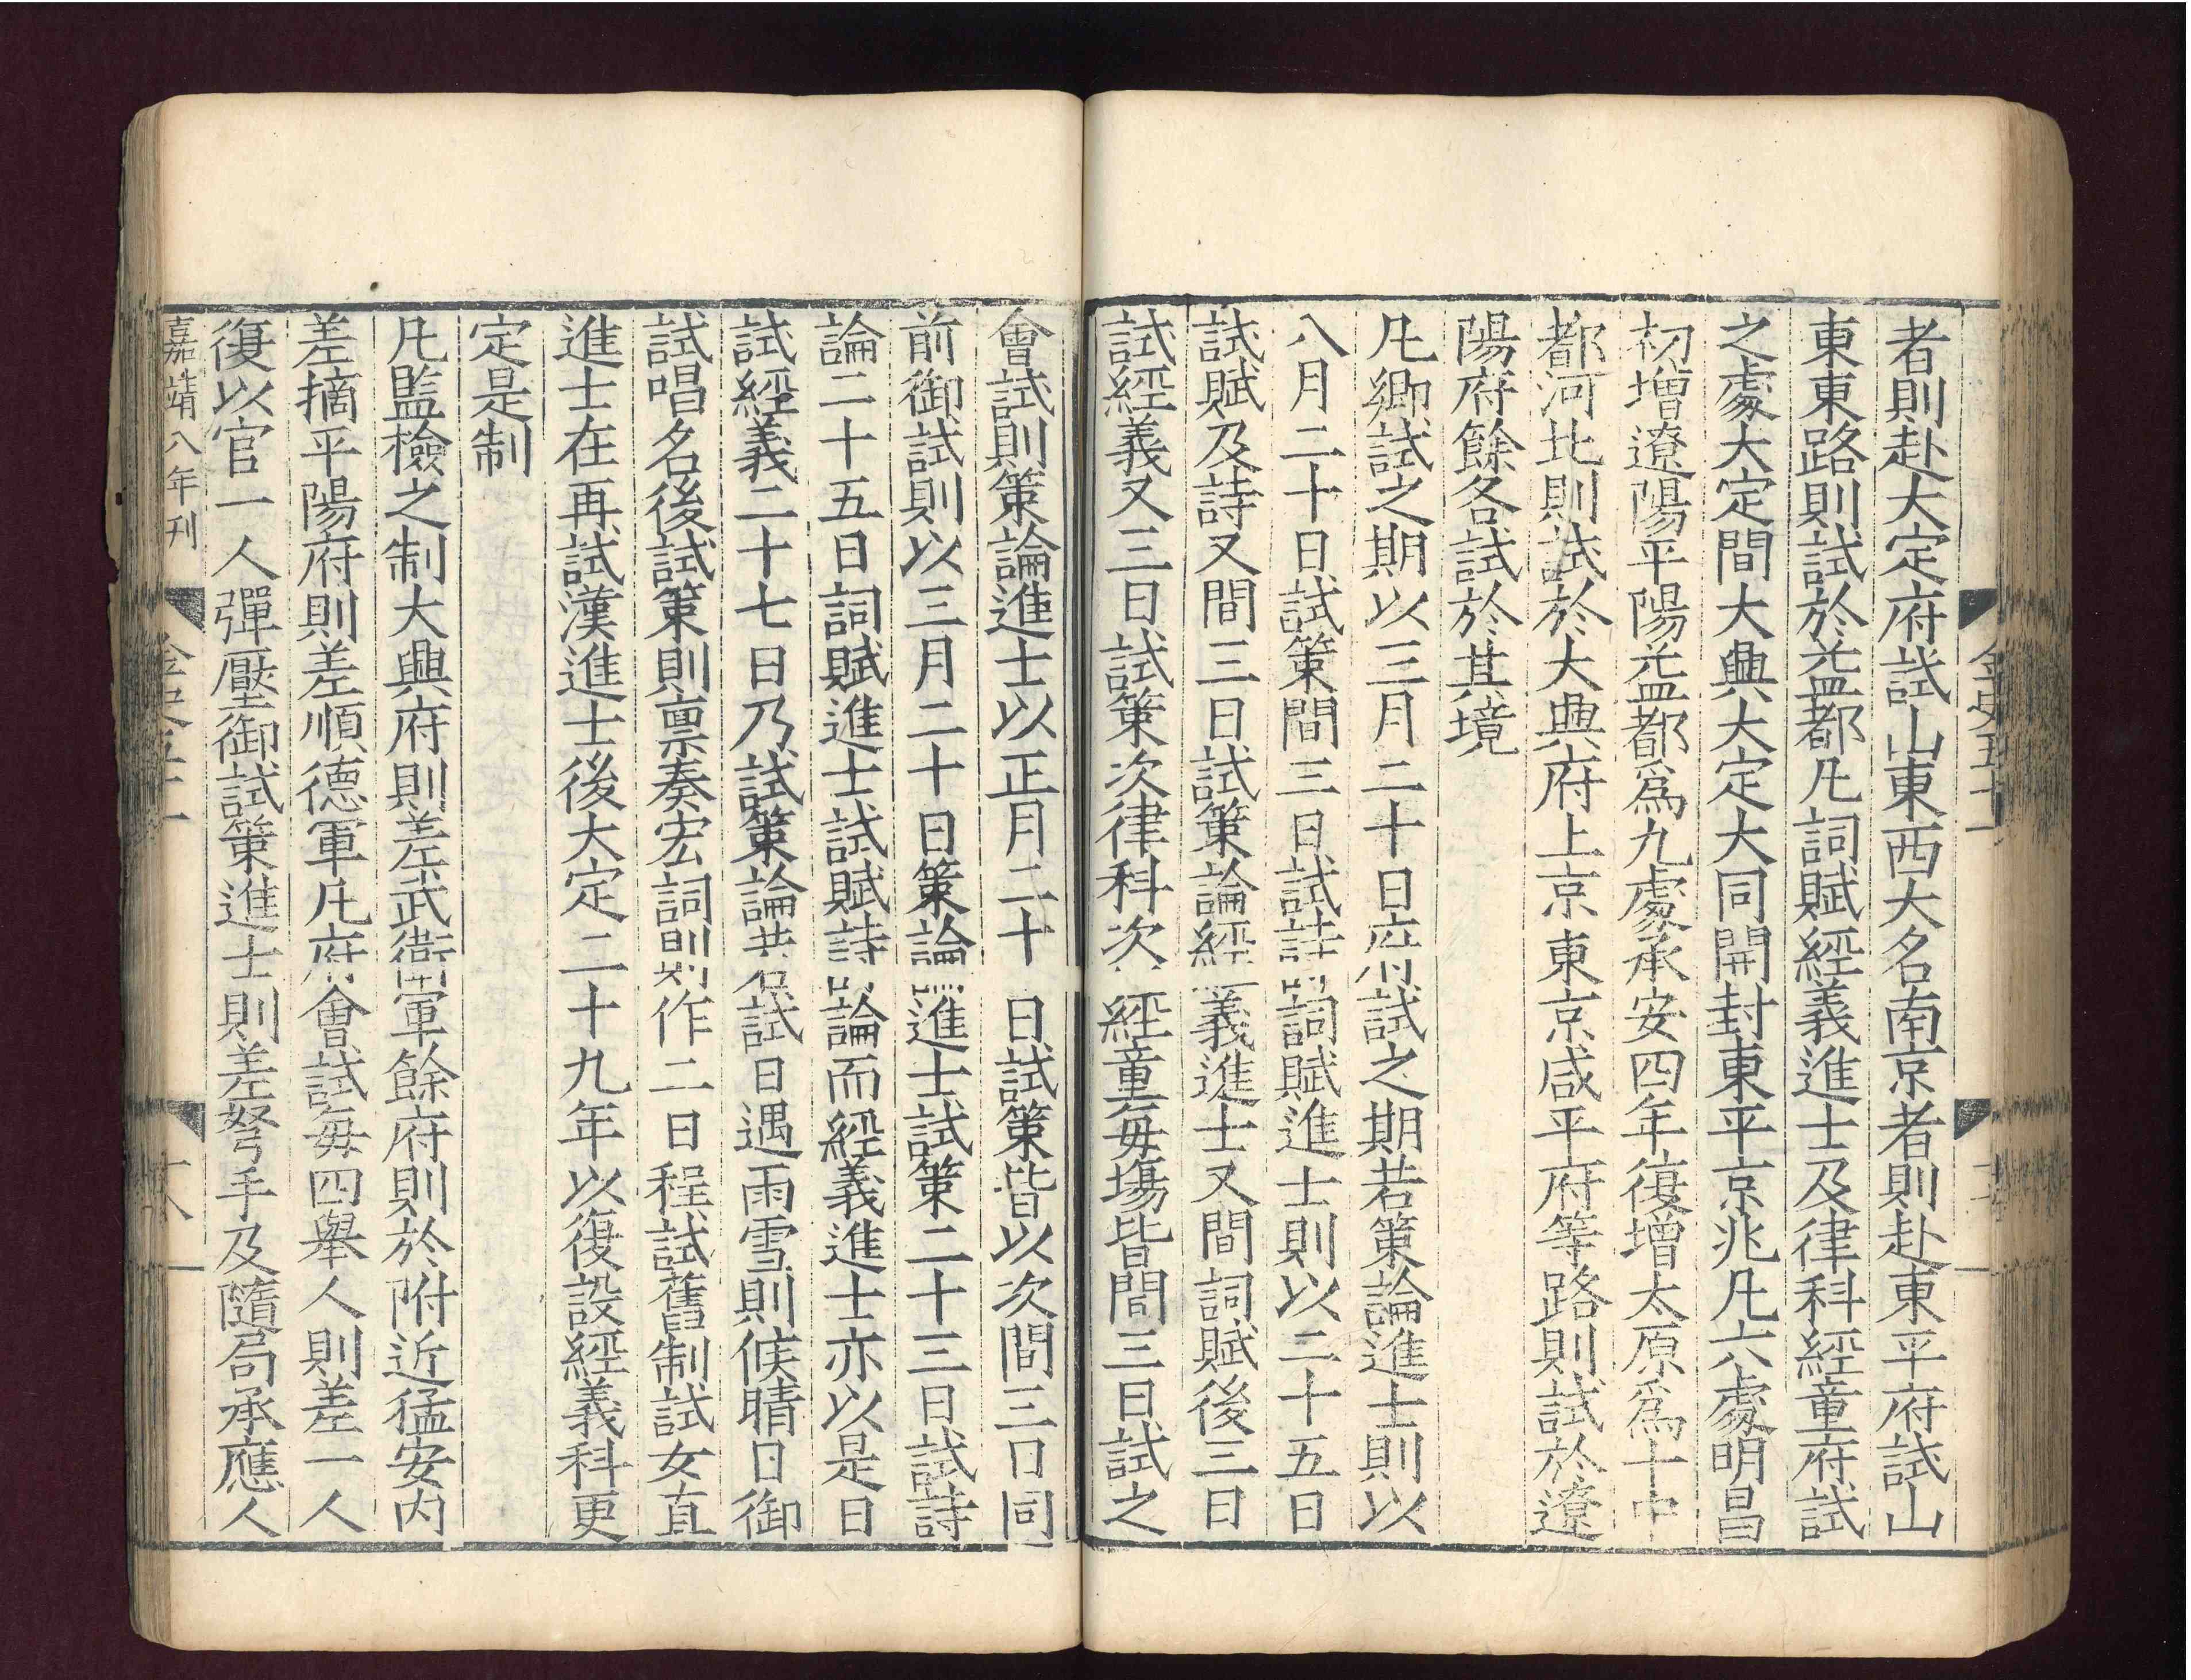 金史五十一
者則赴大定府試山東西大名南京者則赴東平府試山
東東路則試於益都凡詞賦經義進士及律科經童府試
之處大定間大興大定大同開封東平京兆凡六處明昌
初增遼陽平陽益都爲九處承安四年復增太原爲十中
都河北則試於大興府上京東京咸平府等路則試於遼
陽府餘各試於其境
凡鄉試之期以三月二十日府試之期若策論進士則以
八月二十日試策間三日試詩詞賦進士則以二十五日
試賦及詩又間三日試策論經義進士又間詞賦後三日
試經義又三日試策次律科次經童每場皆間三日試之
會試則策論進士以正月二十日試策皆以次間三日同
前御試則以三月二十日策論進士試策二十三日試詩
論二十五日詞賦進士試賦詩論而經義進士亦以是日
試經義二十七日乃試策論若試日遇雨雪則候晴日御
試唱名後試策則稟奏宏詞則作二日程試舊制試女直
進士在再試漢進士後大定二十九年以復設經義科更
定是制
凡監檢之制大興府則差武衛軍餘府則於附近猛安內
差摘平陽府則差順德軍凡府會試每四舉人則差一人
復以官一人彈壓御試策進士則差弩手及隨局承應人
嘉靖八年刊
金史五十一
十八